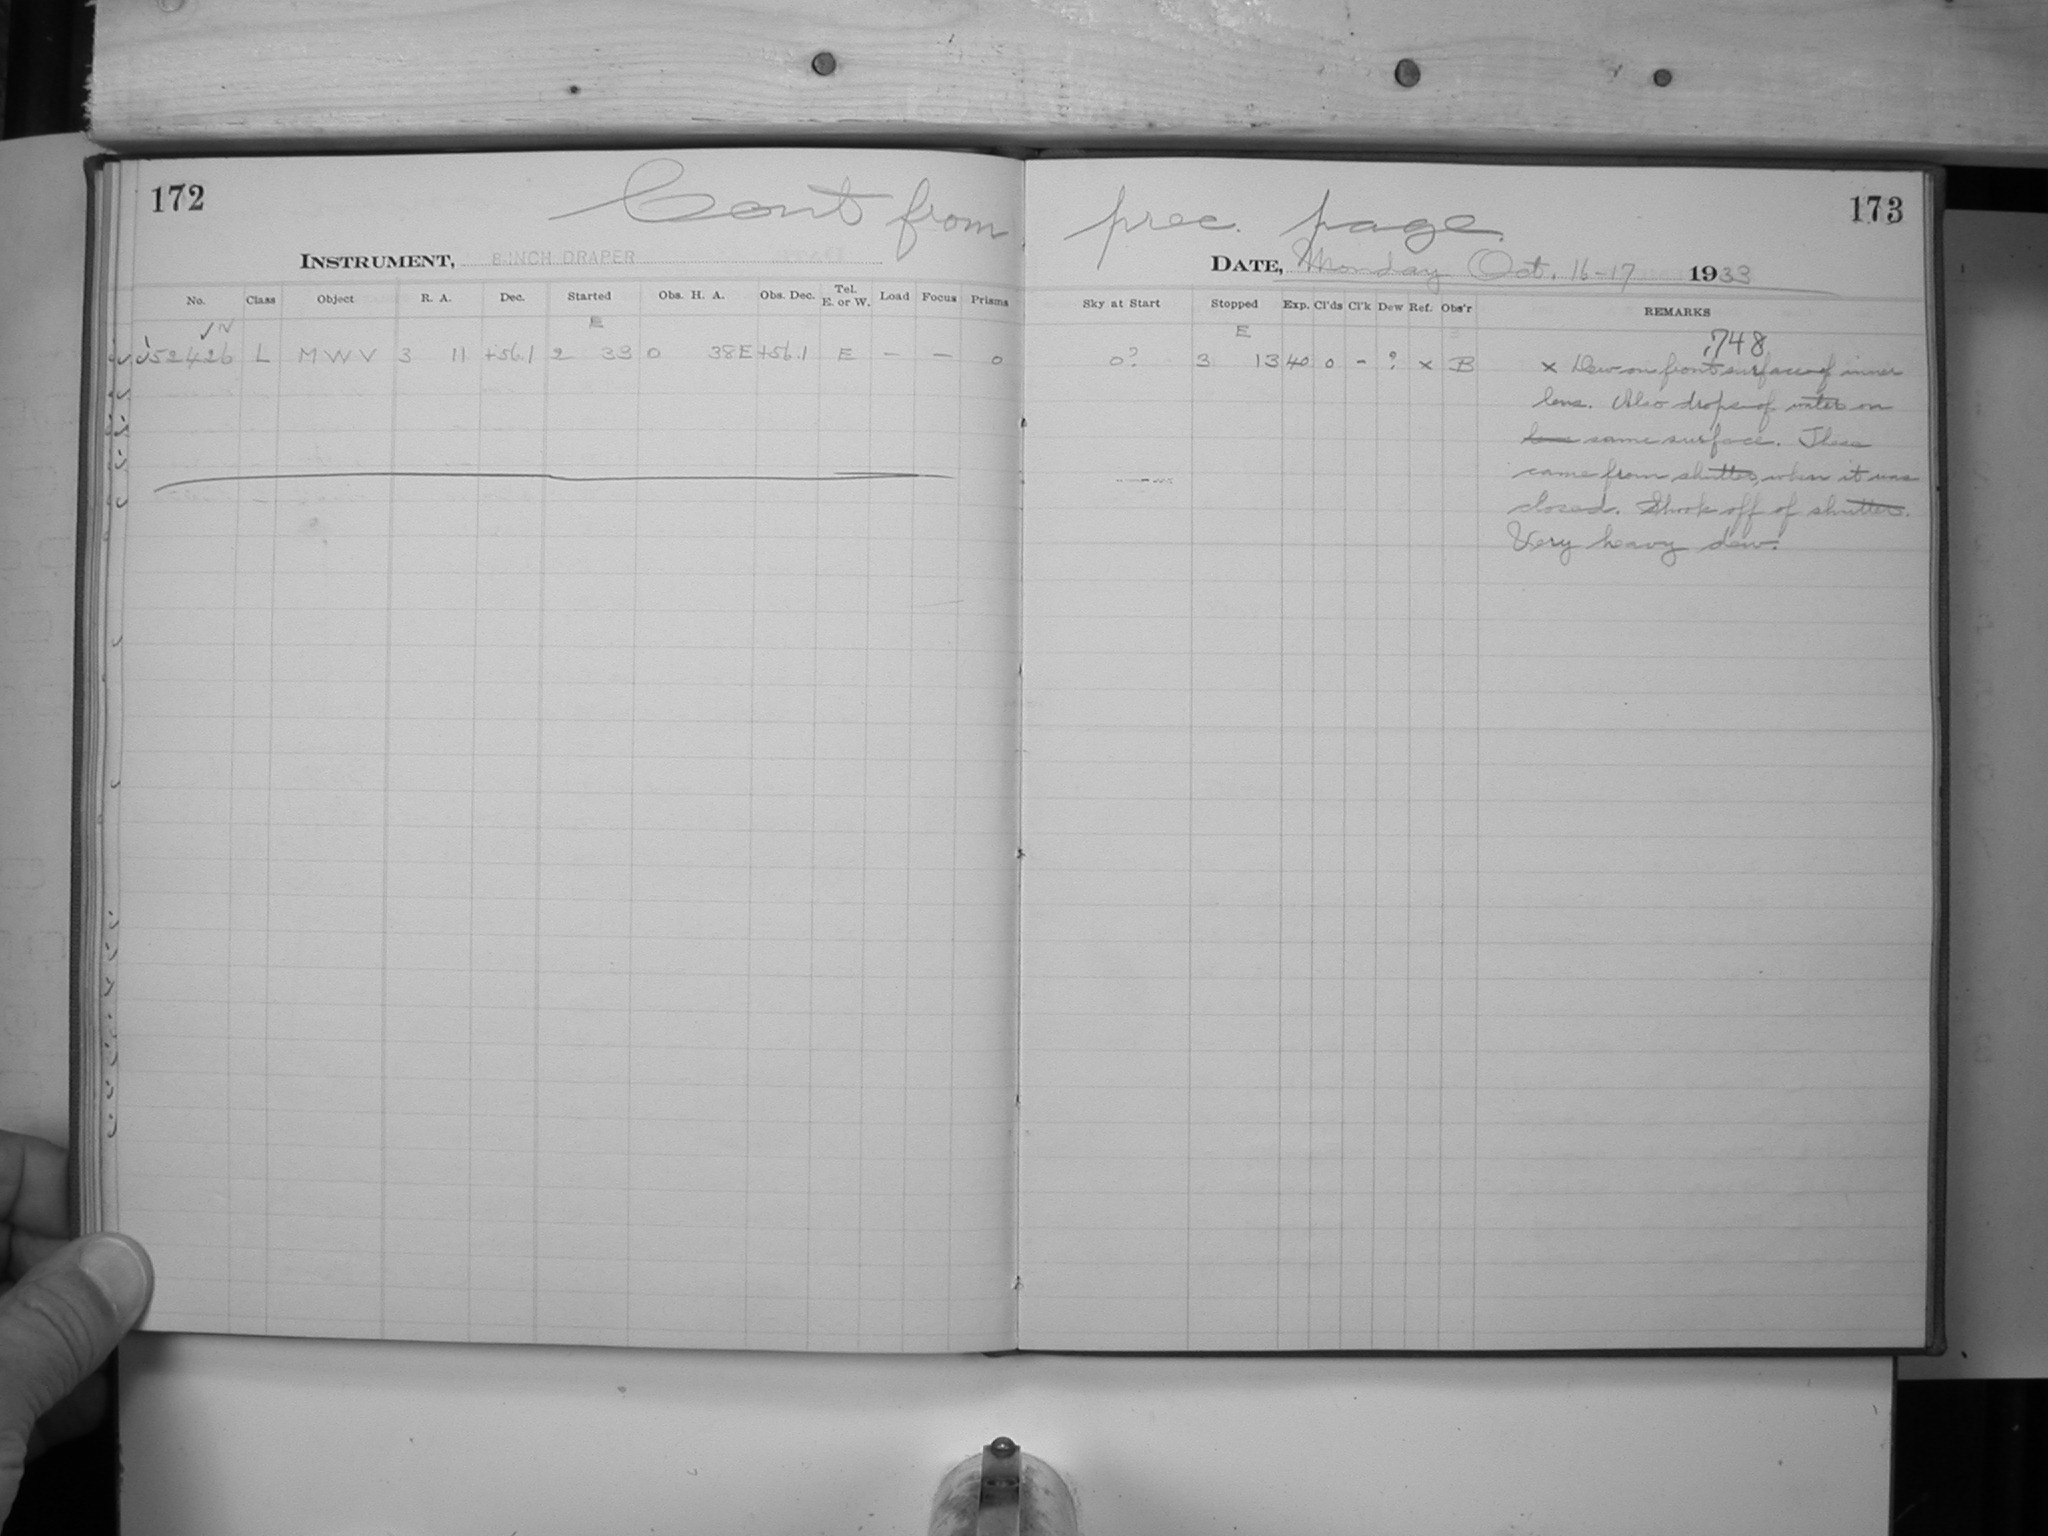 172
173
Cont from prec. page
INSTRUMENT, 8-INCH DRAPER
DATE, Monday Oct. 16-17 1933
No. Class Object R. A. Dec. Started Obs. H. A. Obs. Dec. Tel. E. or W. Load Focus Prisms Sky at Start Stopped Exp. Cl'ds Cl'k Dew Ref. Obs'r REMARKS
E E
52426 L MWV 3 11 +56.1 2 33 0 38E +56.1 E — — 0 0? 3 13 40 0 - ? x B
.748
x Dew on front surface of inner
lens. Also drops of water on
lens same surface. These
came from shutter, when it was
closed. Shook off of shutter.
Very heavy dew.